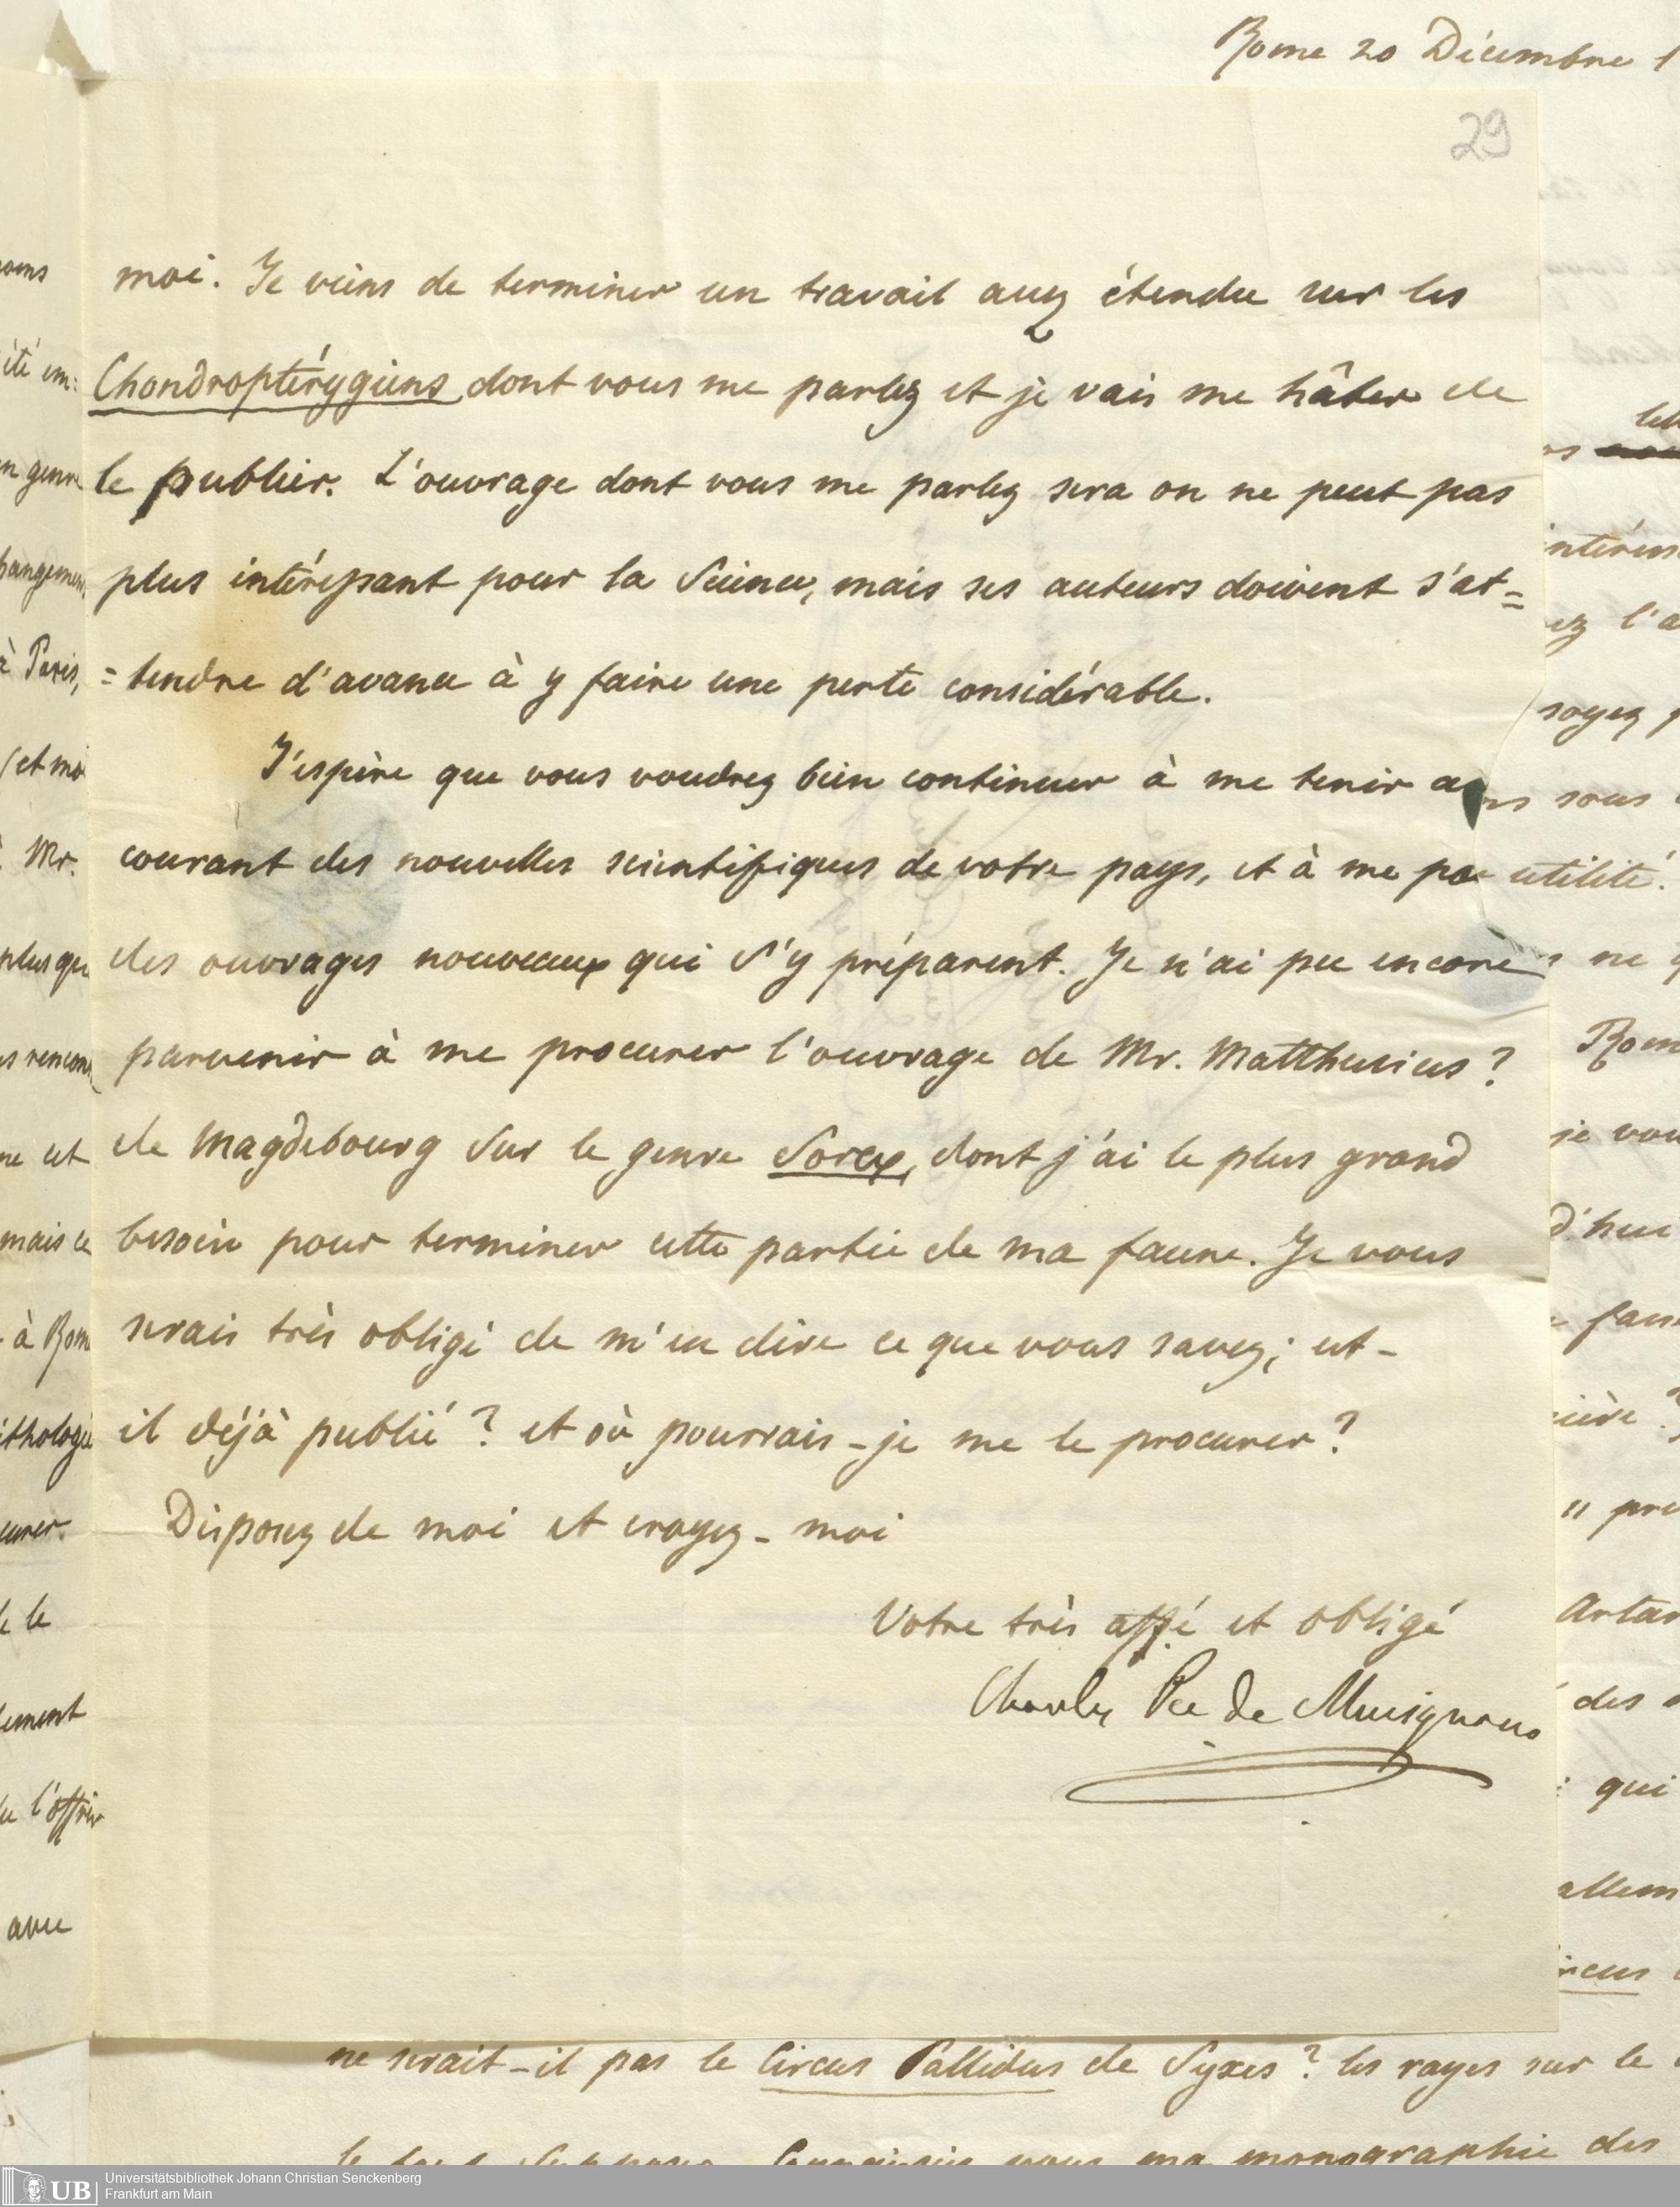 Rome 20 Décembre 1
29
moi. Je viens de terminer un travail assez étendu sur les
Chondroptérygiens dont vous me parlez et je vais me hâter de
le publier. L'ouvrage dont vous me parlez sera on ne peut pas
plus intéressant pour la Science, mais ses auteurs doivent s'at=
=tendre d'avance à y faire une perte considérable.
J'espère que vous voudrez bien continuer à me tenir au
courant des nouvelles scientifiques de votre pays, et à me pa
des ouvrages nouveaux qui s'y préparent. Je n'ai pu encore
parvenir à me procurer l'ouvrage de Mr. Matthusius?
de Magdebourg sur le genre Sorex, dont j'ai le plus grand
besoin pour terminer cette partie de ma faune. Je vous
serais très obligé de m'en dire ce que vous savez; est-
il déjà publié? et où pourrais-je me le procurer?
Disposez de moi et croyez-moi
Votre très affé et obligé
Charles Pce de Musignano
ne serait-il pas le Circus Pallidus de Syxes? les rayes sur le
vous ma monographie des
oins
été em:
en genre
hangemen
à Paris,
(et moi
Mr.
plus qu
rencon
ne et
mais ce
à Rom
ithologie
curer.
le
ement
l'offrir
avec
intéress
ez l'a
soyez
ns sous
utilité.
ne
Rom
je vou
d'hui
ière?
" pre
Antar
des
qui
allem
ircus
Universitätsbibliothek Johann Christian Senckenberg
Frankfurt am Main
UB